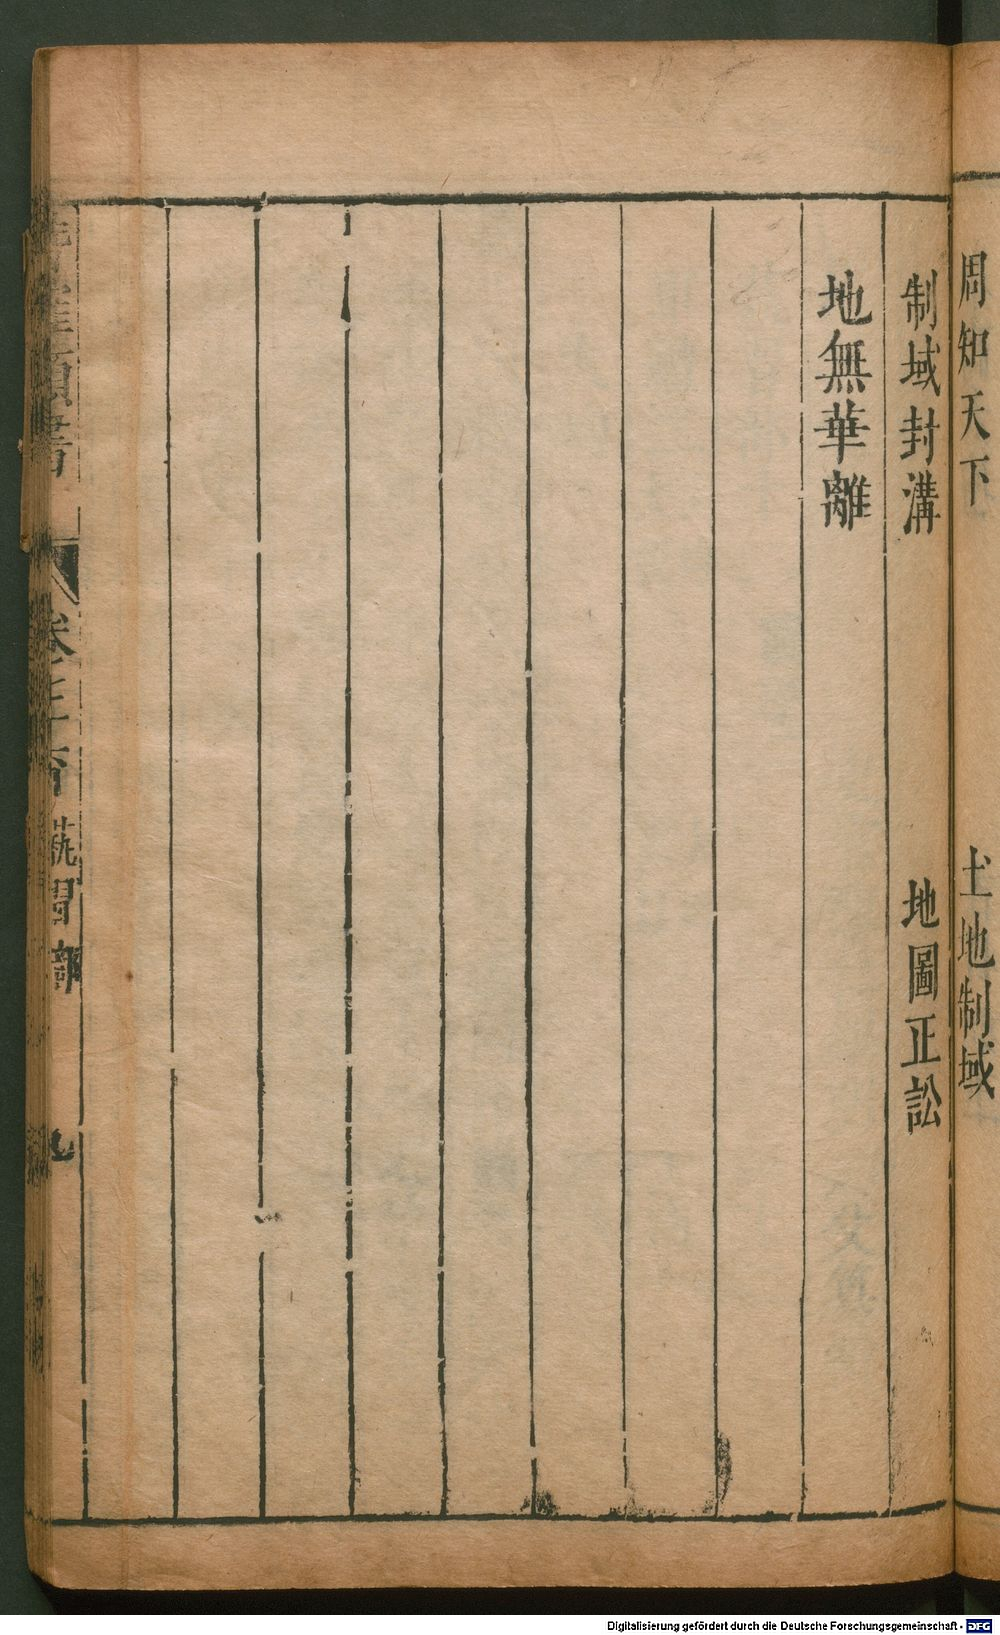 周知天下　土地制域
制域封溝　地圖正訟
地無華離
卷三百
九
Digitalisierung gefördert durch die Deutsche Forschungsgemeinschaft - DFG